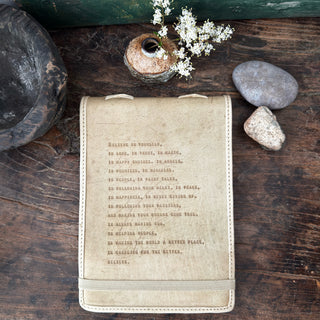 Believe in yourself,
in love, in trust, in magic,
in happy endings, in angels,
in promises, in miracles,
in people, in fairy tales,
in following your heart, in peace,
in happiness, in never giving up,
in following your passions,
and making your dreams come true.
in always having fun,
in helping people,
in making the world a better place,
in changing for the better.
Believe.